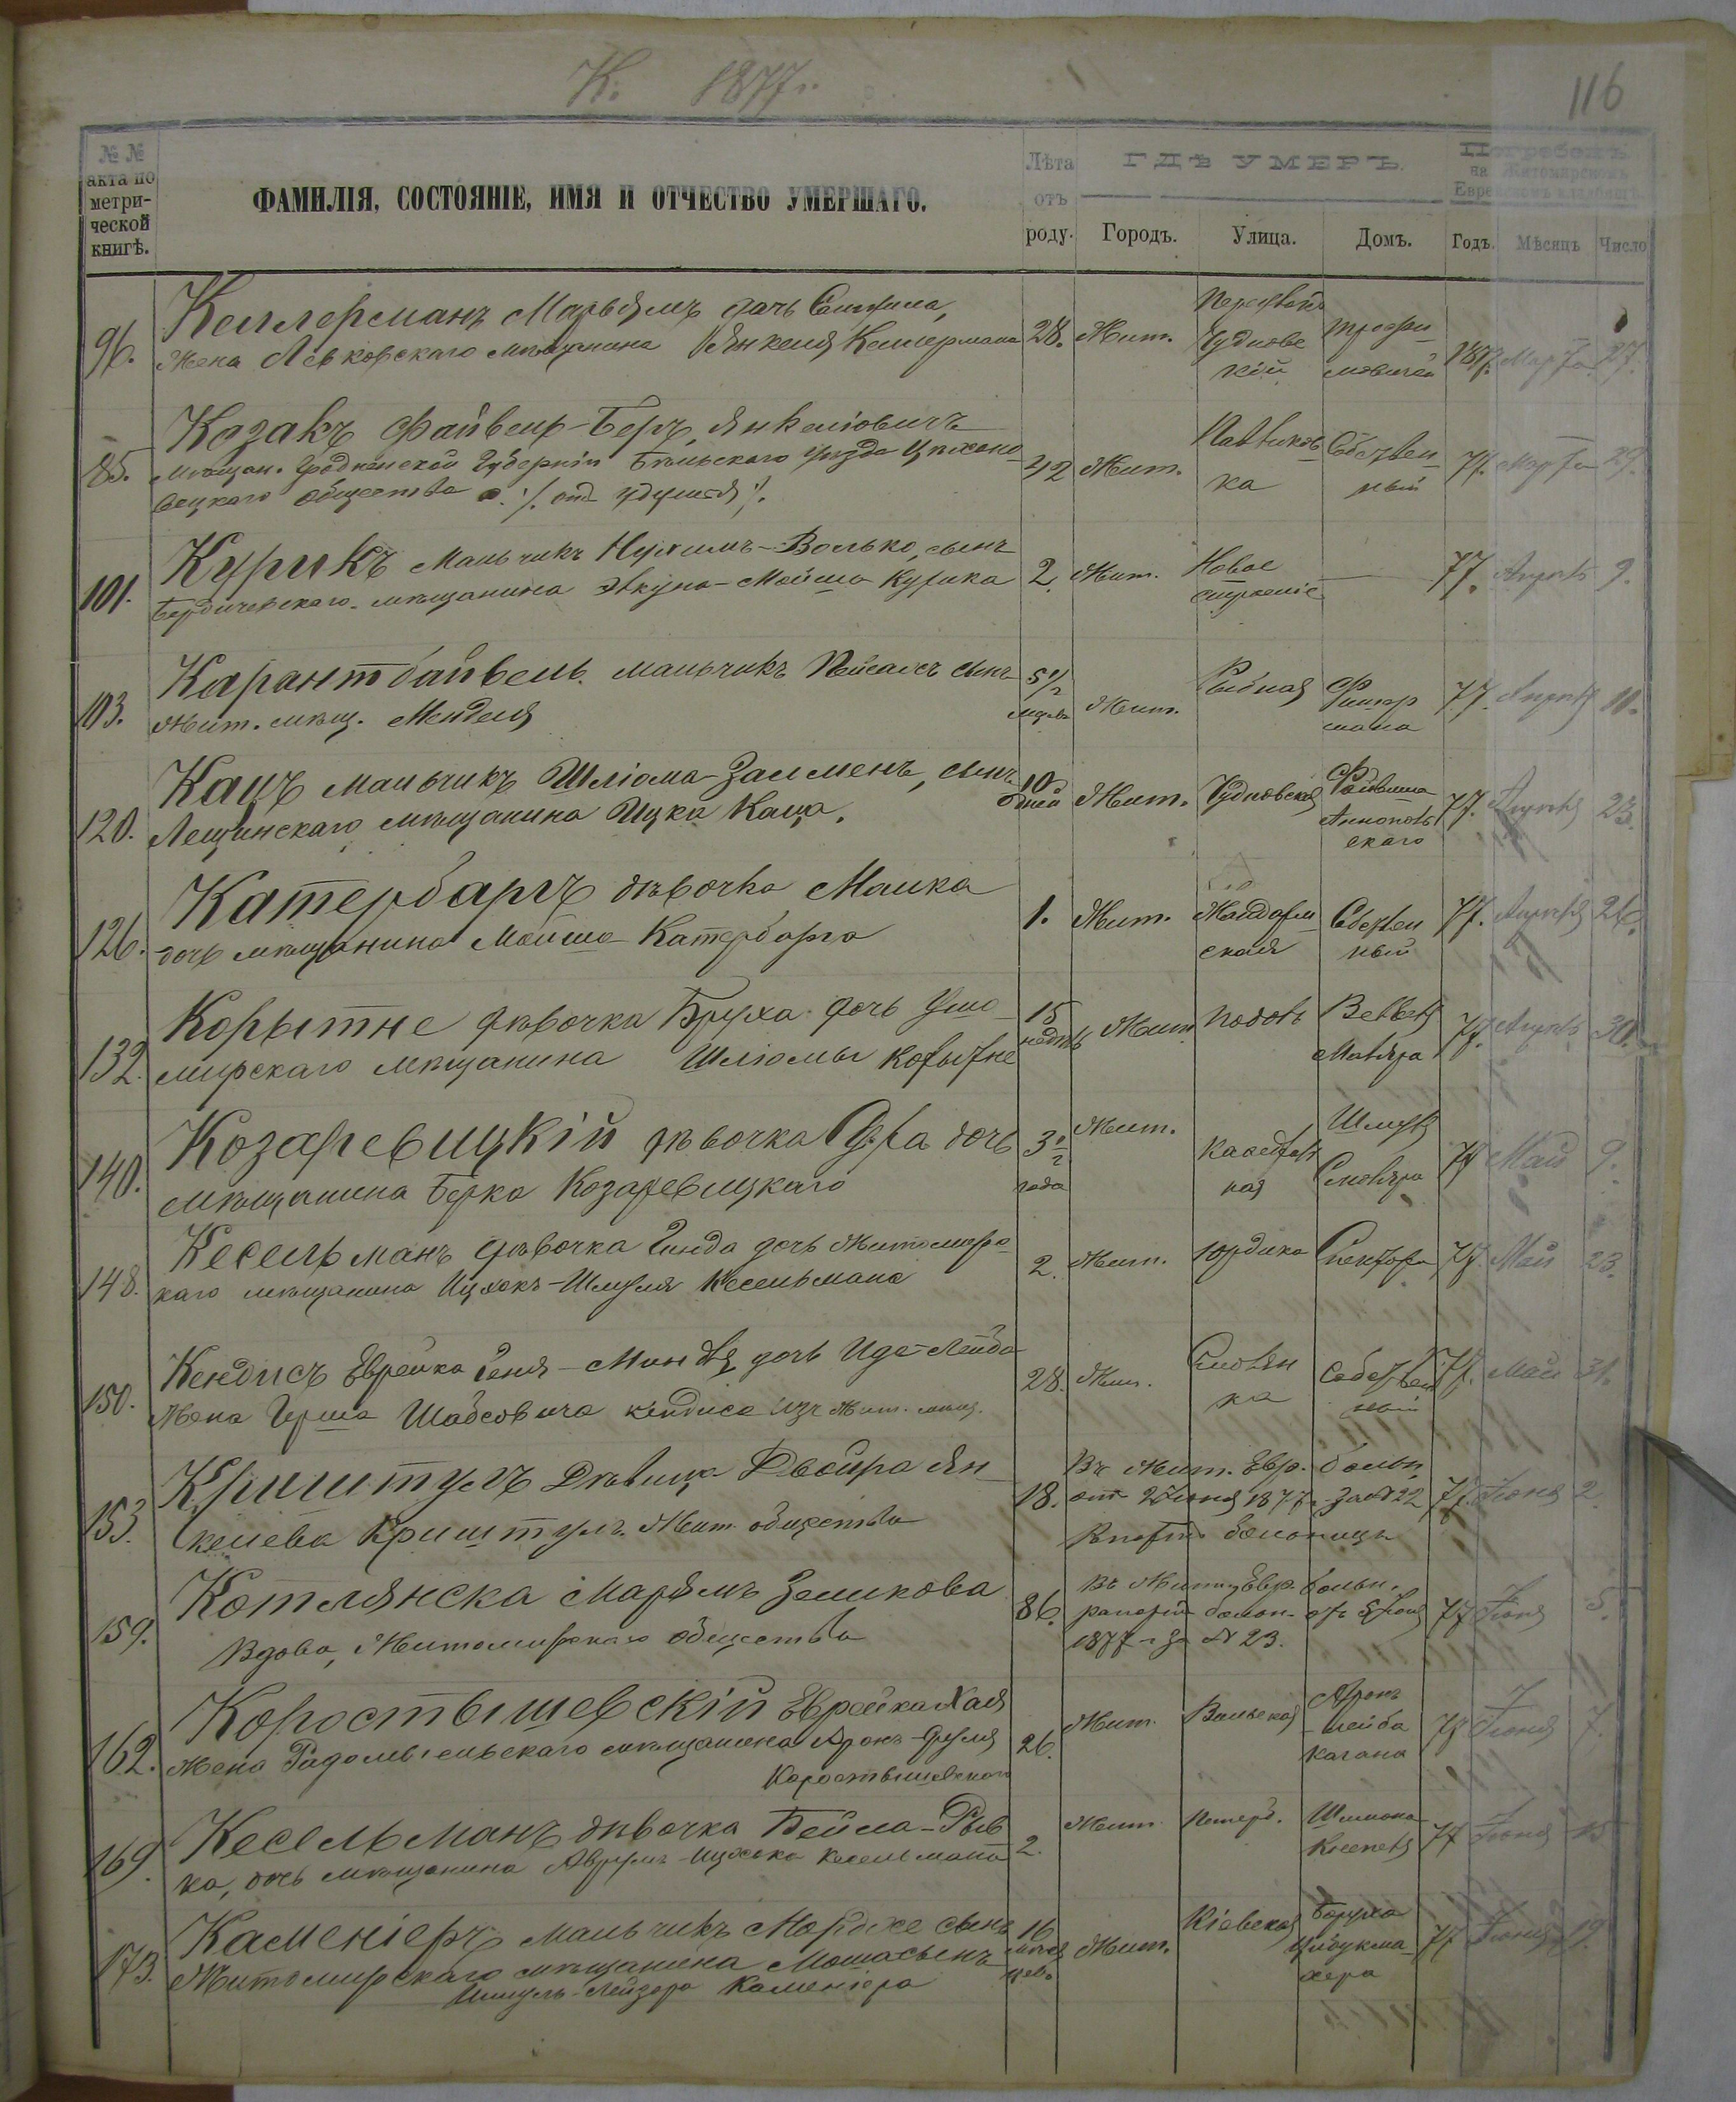 К. 1877 г.
116
№ № акта по метрической книгѣ.
ФАМИЛІЯ, СОСТОЯНІЕ, ИМЯ И ОТЧЕСТВО УМЕРШАГО.
Лѣта отъ роду.
ГДѢ УМЕРЪ.
Городъ. Улица. Домъ.
Погребенъ на Житомирскомъ Еврейскомъ кладбищѣ
Годъ. Мѣсяцъ Число
96. Келлерманъ Марьямъ дочь
Жена Левковскаго мѣщанина Янкеля Келлермана
28. Жит. Чудновскій 1877. Марта 27.
85. Козакъ Файвель-Беръ Янкеліовичъ
мѣщан. Гродненской Губерніи Бѣльскаго уѣзда Цѣхановецкаго общества
42 Жит. Павликовка Собствен- ный 77. Марта 29.
101. Курикъ Мальчикъ Нухимъ-Волько, сынъ
Бердичевскаго мѣщанина Мойша Курика
2. Жит. Новое строеніе — 77. Апрѣля 9.
103. Карантбайвель мальчикъ Пейсахъ сынъ
Жит. мѣщ. Менделя
5 1/2 Жит. Рыбная Фишер мана 77. Апрѣля 11.
120. Кацъ мальчикъ Шліома-Залменъ, сынъ
Лещинскаго мѣщанина Ицка Каца.
10 дней Жит. Чудновская 77. Апрѣля 23.
126. Катербаргъ дѣвочка Малка
дочь мѣщанина Мойша Катербарга
1. Жит. Жандарм ская Собствен ный 77. Апрѣля 26.
132. Корытне дѣвочка Бруха дочь
мирскаго мѣщанина Шліомы Корытне
15 недѣль Жит. Подолъ 77. Апрѣля 30.
140. Козаревицкій дѣвочка Сура дочь
мѣщанина Берка Козаревицкаго
3 1/2 года Жит. Кафедраль ная Шмуля Столяра 77 Май 9.
148. Кесельманъ дѣвочка Гинда дочь Житомирс-
каго мѣщанина Ицхокъ-Шмуля Кесельмана
2. Жит. Юрдика Спектора 77. Май 23.
150. Кендисъ Еврейка Геня-Миндля дочь Лейба
Жена Герша Шабсовича Кендиса изъ Жит. мѣщ.
28. Жит. Смолян ка Собствен ный 77. Май 31.
153. Криштулъ Дѣвица Двойра Ян-
келева Криштулъ. Жит. общества
18. Въ Жит. Евр. больн.
от 2 Іюня 1877 г. за № 22
Рапортъ больницы
77. Іюня 2.
159. Котлянска Марьямъ Зеликова
Вдова, Житомирскаго общества
86. Въ Житом. Евр. больн.
рапортъ больн. отъ 5 Іюня
1877 г. за № 23.
77 Іюня 5.
162. Коростышевскій Еврейка Хая
Жена Радомысльскаго мѣщанина Аронъ-Сруля
Коростышевскаго
26. Жит. Вильская Аронъ-Лейба Кагана 77 Іюня 7.
169. Кесельманъ дѣвочка Бейла-Рыв
ка, дочь мѣщанина Аврумъ-Ицхока Кесельмана
2. Жит. Петерб. Шлиома 77 Іюня 15
173. Каменіеръ мальчикъ Мордхе сынъ
Житомирскаго мѣщанина Мошасынъ
Шмуль-Лейзера Каменіера
16 Жит. Кіевская Боруха 77 Іюня 19.